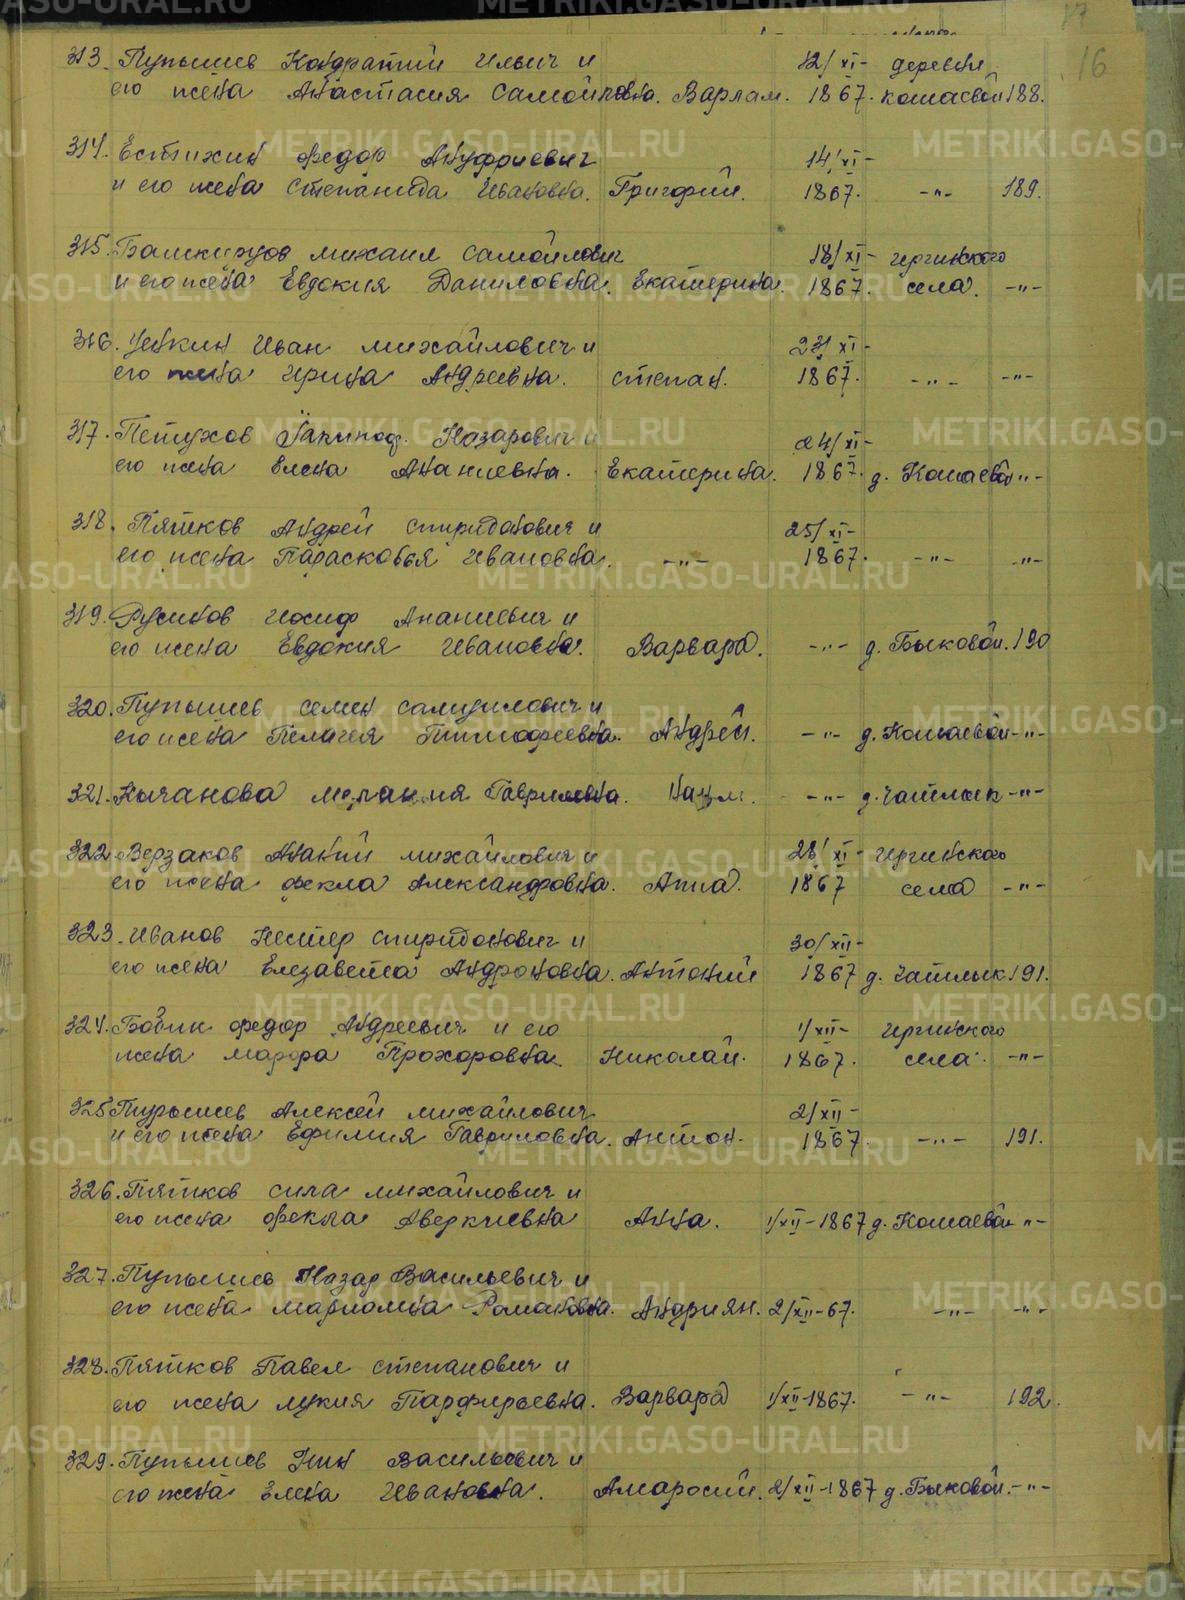 17
16
313. Пупышев Кондратий Ильич и 12/XI- деревня
его жена Анастасия Самойловна. Варлам. 1867. Кошаевой 188.
314. Естихин Федор Ануфриевич 14/XI-
и его жена Степанида Ивановна. Григорий. 1867. -"- 189.
315. Башкирцов Михаил Самойлович 18/XI- иргинского
и его жена Евдокия Даниловна. Екатерина. 1867. села. -"-
316. Иван Михайлович и 23/XI-
его жена Ирина Андреевна. Степан. 1867. -"- -"-
317. Петухов Назарович и 24/XI-
его жена Елена Ананиевна. Екатерина. 1867. д. Кошаевой -"-
318. Пятков Андрей Спиридонович и 25/XI-
его жена Парасковья Ивановна. -"- 1867. -"- -"-
319. Русинов Иосиф Ананиевич и
его жена Евдокия Ивановна. Варвара. -"- д. Быковой. 190
320. Пупышев Семен Самуилович и
его жена Пелагея Тимофеевна. Андрей. -"- д. Кошаевой -"-
321. Кычанова Мелания Гавриловна. Наум. -"- д. Чатлык -"-
322. Верзаков Ананий Михайлович и 28/XI- иргинского
его жена Фекла Александровна. Анна. 1867 села -"-
323. Иванов Нестер Спиридонович и 30/XII-
его жена Елезавета Андроновна. Антоний 1867 д. Чатлык 191.
324. Бовин Федор Андреевич и его 1/XII- иргинского
жена Марфа Прохоровна. Николай. 1867. села. -"-
325 Пупышев Алексей Михайлович 2/XII-
и его жена Ефимия Гавриловна. Антон. 1867. -"- 191.
326. Пятков Сила Михайлович и
его жена Фекла Аверкиевна Анна. 1/XII-1867 д. Кошаевой -"-
327. Пупышев Назар Васильевич и
его жена Маремьяна Романовна. Андриян. 2/XII-67. -"- -"-
328. Пятков Павел Степанович и
его жена Лукия Парфирьевна. Варвара 1/XII-1867. -"- 192.
329. Пупышев Нил Васильевич и
его жена Елена Ивановна. Амвросий. 2/XII-1867 д. Быковой. -"-